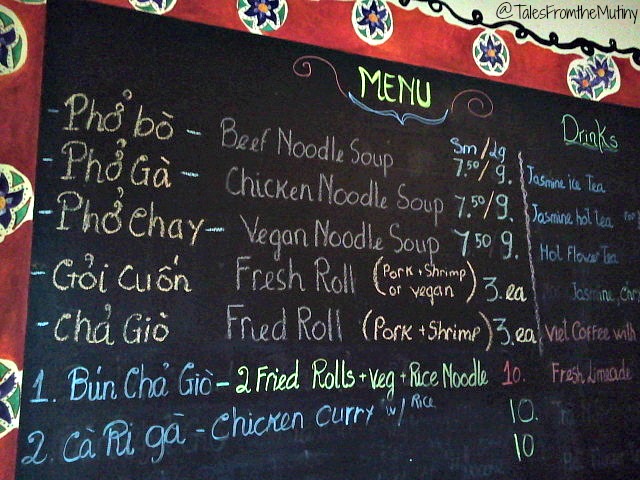 @TalesFromtheMutiny
MENU
Sm/Lg
- Phở bò - Beef Noodle Soup 7.50/9.
- Phở Gà - Chicken Noodle Soup 7.50/9.
- Phở Chay - Vegan Noodle Soup 7.50 9.
- Gỏi Cuốn Fresh Roll (Pork + Shrimp or vegan) 3.ea
- Chả Giò Fried Roll (Pork + Shrimp) 3.ea
1. Bún Chả Giò - 2 Fried Rolls + Veg + Rice Noodle 10.
2. Cà Ri gà - Chicken Curry w/ Rice 10.
10
Drinks
Jasmine ice Tea
Jasmine hot Tea
Hot Flower Tea
Jasmine
Viet Coffee with
Fresh Limeade